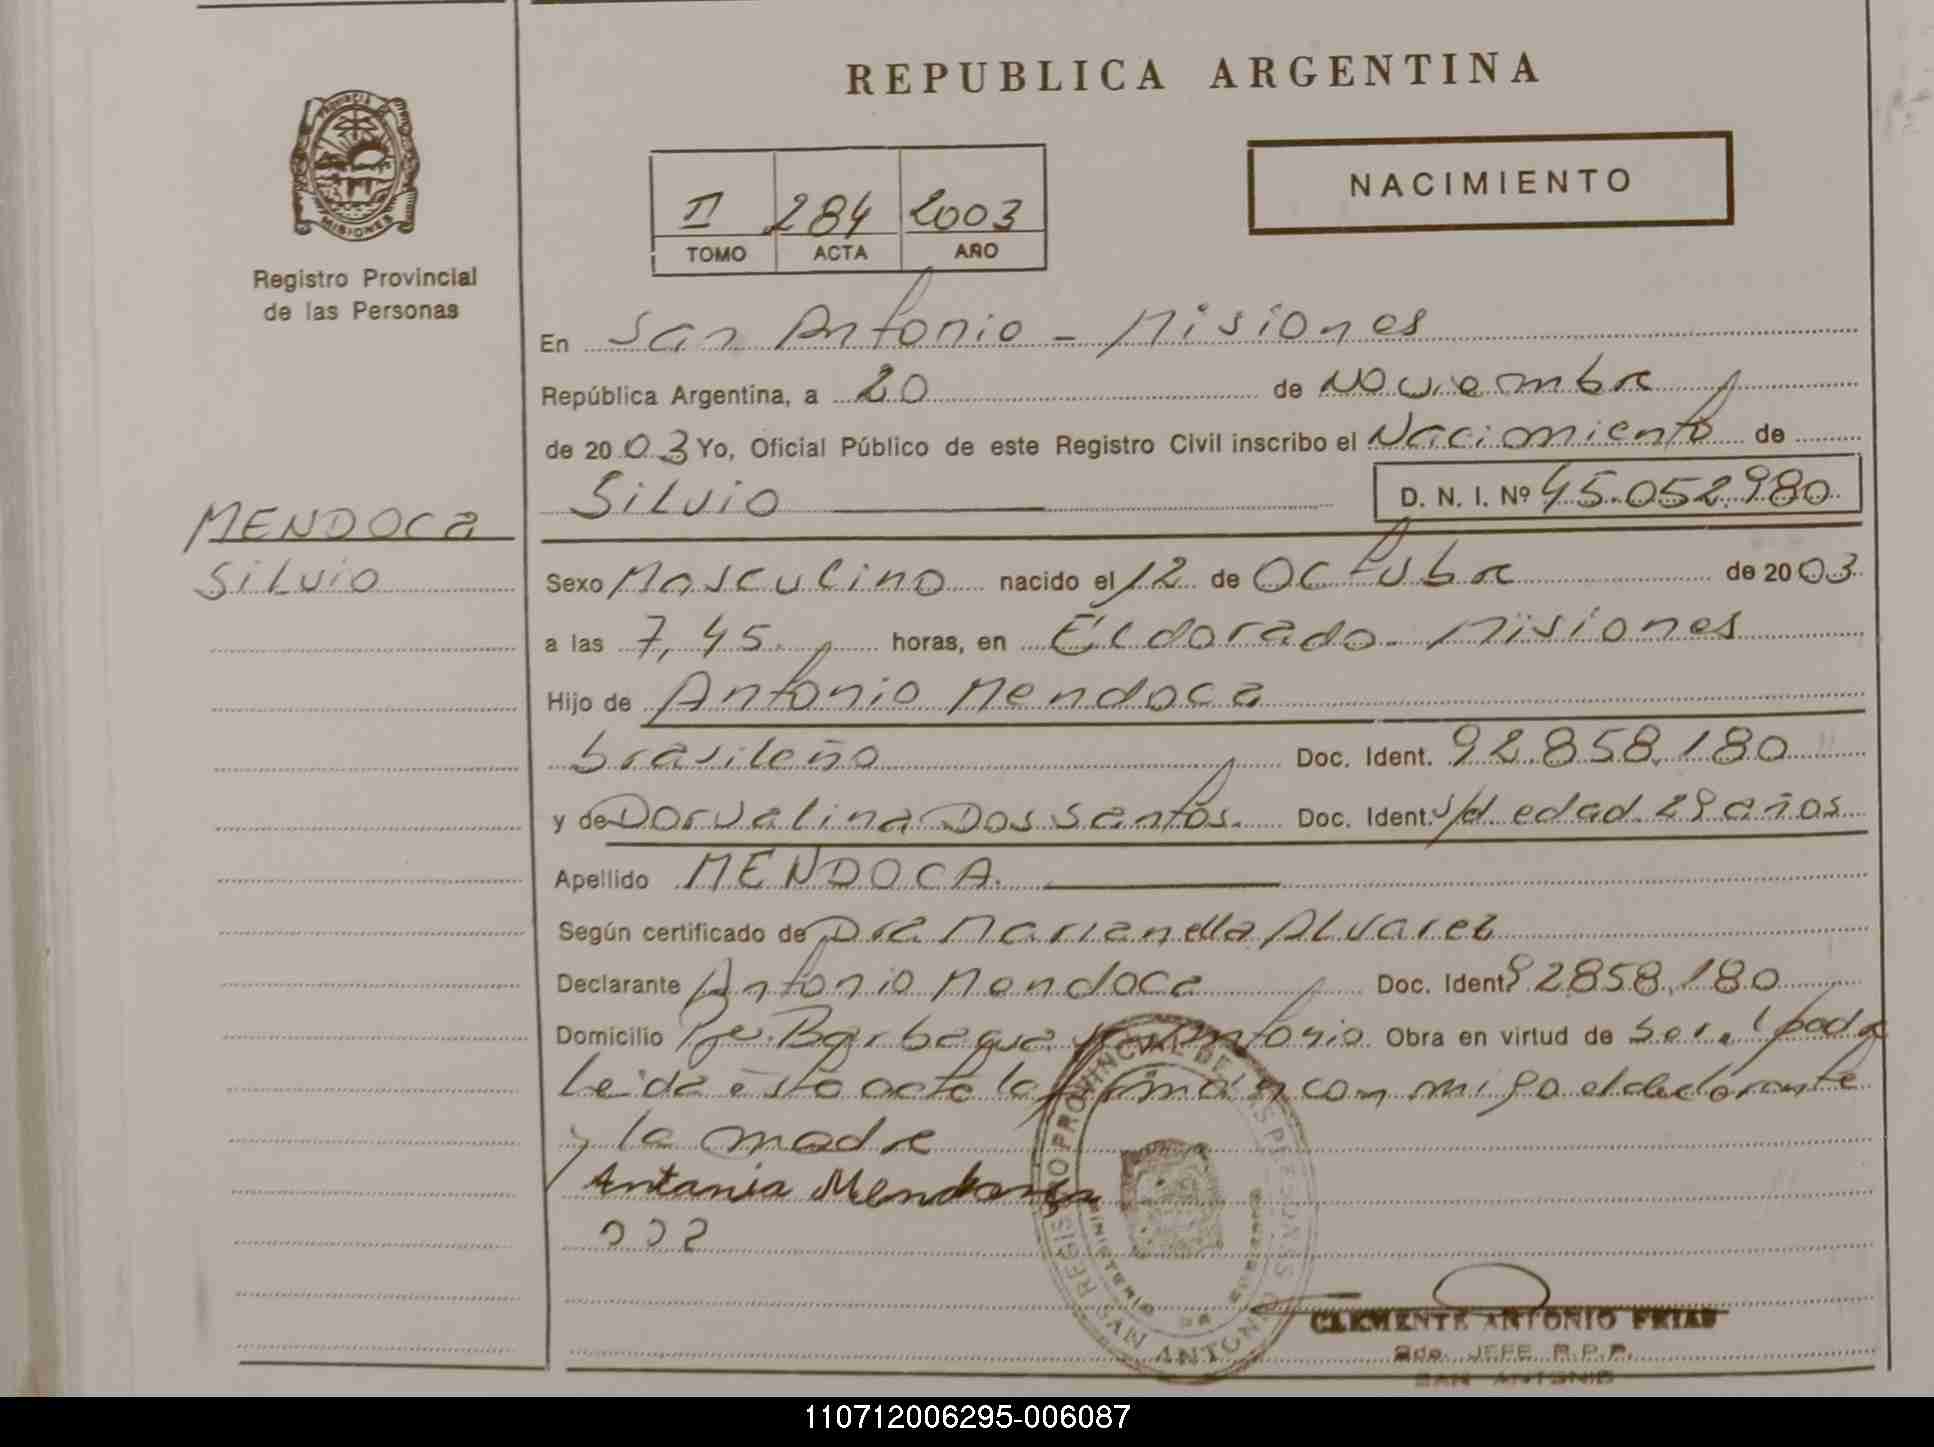 REPUBLICA ARGENTINA
PROVINCIA DE
MISIONES
Registro Provincial
de las Personas
II 284 2003
TOMO ACTA AÑO
NACIMIENTO
En San Antonio - Misiones
República Argentina, a 20 de Noviembre
de 2003 Yo, Oficial Público de este Registro Civil inscribo el Nacimiento de
Silvio D. N. I. Nº 45.052.980
MENDOCA
Silvio
Sexo Masculino nacido el 12 de Octubre de 2003
a las 7,45. horas, en Eldorado - Misiones
Hijo de Antonio Mendoca
brasileño Doc. Ident. 92.858.180
y de Dorvalina Dos Santos. Doc. Ident. s/d. edad 29 años
Apellido MENDOCA.
Según certificado de Dra Marianella Alvarez
Declarante Antonio Mendoca Doc. Ident. 92858.180
Domicilio Pje. Barbaqua Antonio. Obra en virtud de Ser. padre
Leida esta acta la firman conmigo el declarante
y la madre
Antania
REGISTRO PROVINCIAL DE LAS PERSONAS
MINISTERIO DE GOBIERNO
SAN ANTONIO
CLEMENTE ANTONIO FRIAS
2do. JEFE R.P.P.
SAN ANTONIO
110712006295-006087